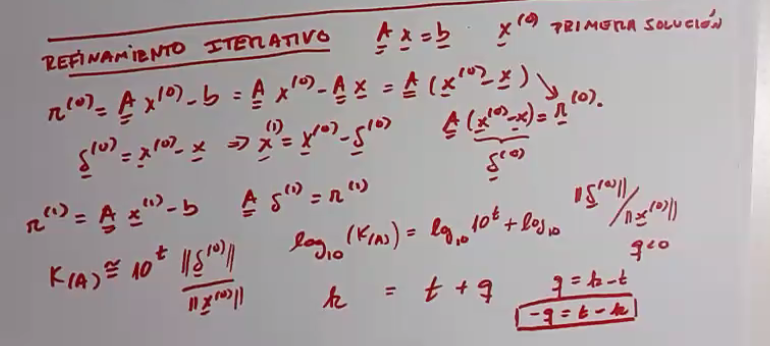 REFINAMIENTO ITERATIVO A x = b x^(0) PRIMERA SOLUCIÓN
r^(0) = A x^(0) - b = A x^(0) - A x = A (x^(0) - x) ↘ A (x^(0) - x) = r^(0).
δ^(0) = x^(0) - x ⇒ x^(1) = x^(0) - δ^(0) δ^(0)
r^(1) = A x^(1) - b A δ^(1) = r^(1)
K(A) ≅ 10^t ||δ^(0)|| / ||x^(0)|| log10 (K(A)) = log10 10^t + log10 ||δ^(0)|| / ||x^(0)||
q<0
k = t + q q = k - t
-q = t - k